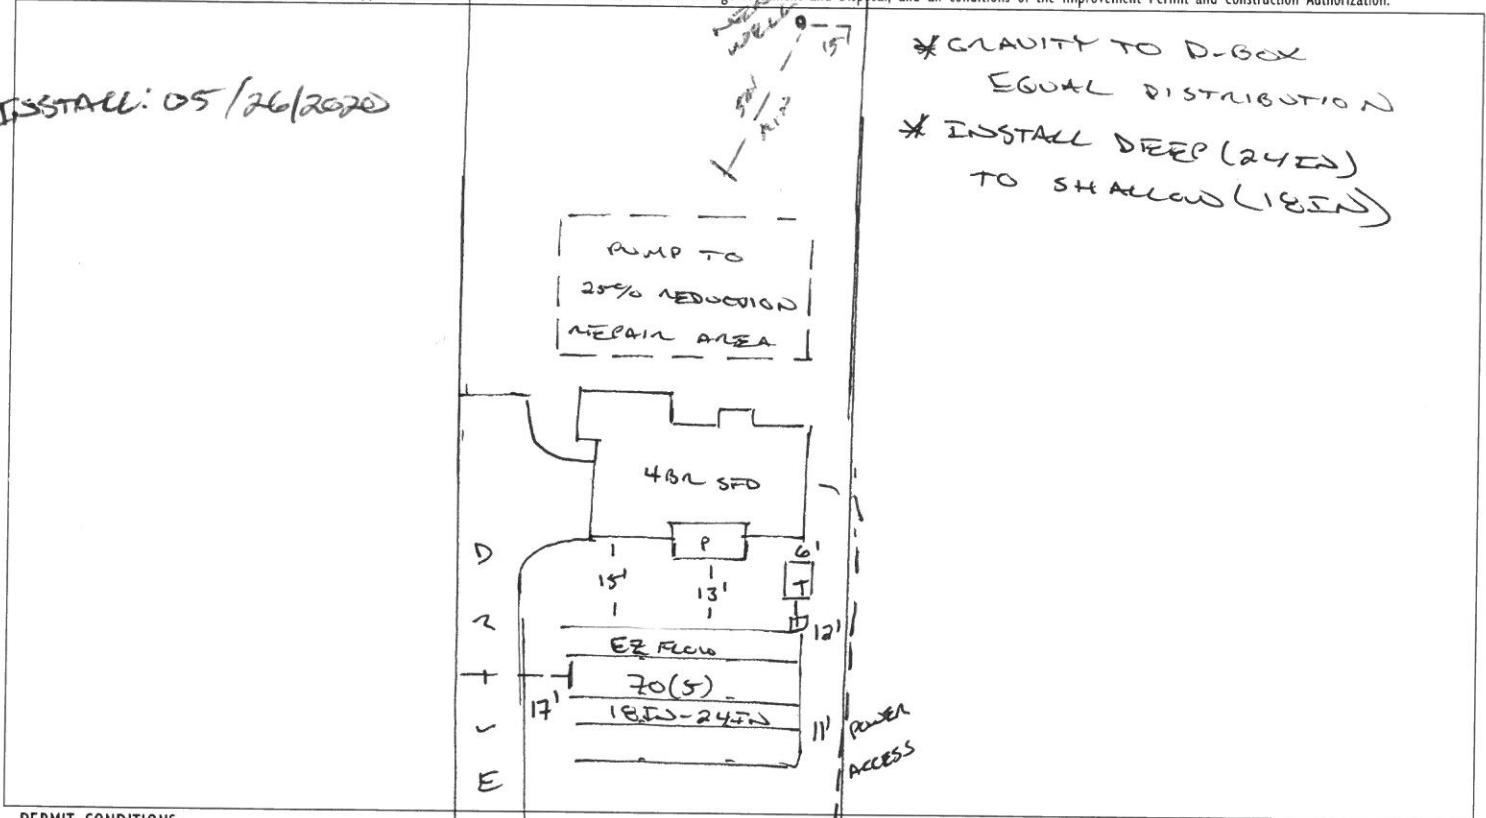 and all conditions of the Improvement Permit and Construction Authorization.
WELL
15'
50'
MIN
INSTALL: 05/26/2020
* GRAVITY TO D-BOX
EQUAL DISTRIBUTION
* INSTALL DEEP (24IN)
TO SHALLOW (18IN)
PUMP TO
25% REDUCTION
REPAIR AREA
4BR SFD
P
6'
15'
13'
T
12'
EZ FLOW
70(5)
18IN-24IN
17'
11'
POWER
ACCESS
D
R
I
V
E
PERMIT CONDITIONS